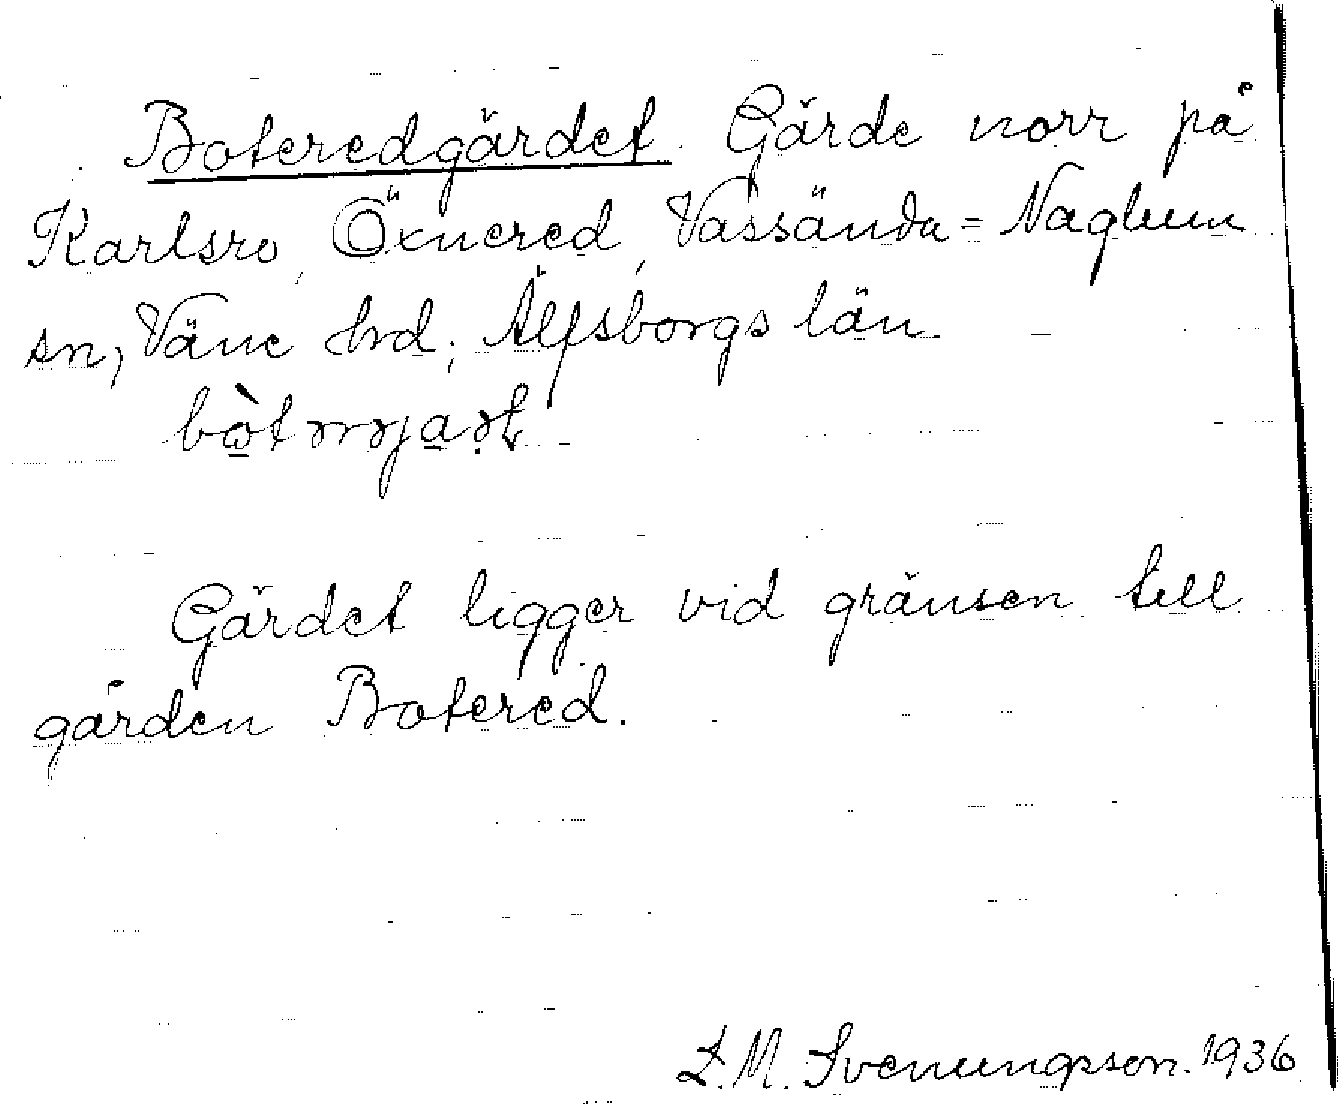 Boteredgärdet. Gärde norr på
Karlsro, Öxnered, Vassända=Naglum
sn, Väne hrd, Älfsborgs län.
Gärdet ligger vid gränsen till
gården Botered.
L.M. Svenungsson. 1936